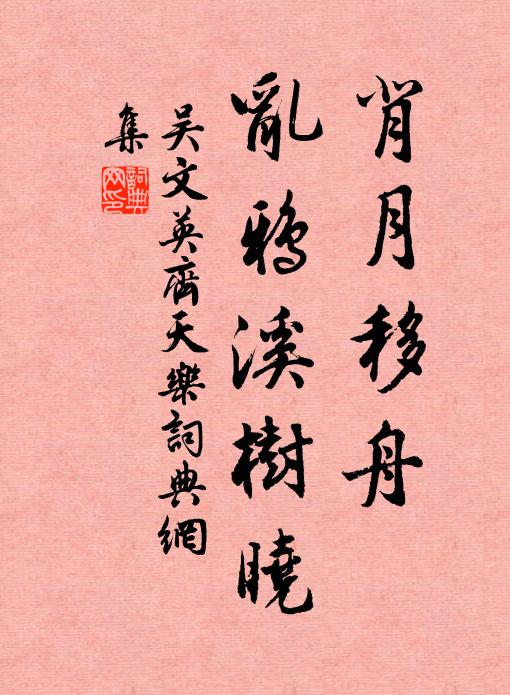 背月移舟
亂鴉溪樹曉
吴文英齊天樂詞典網
集
詞典网印